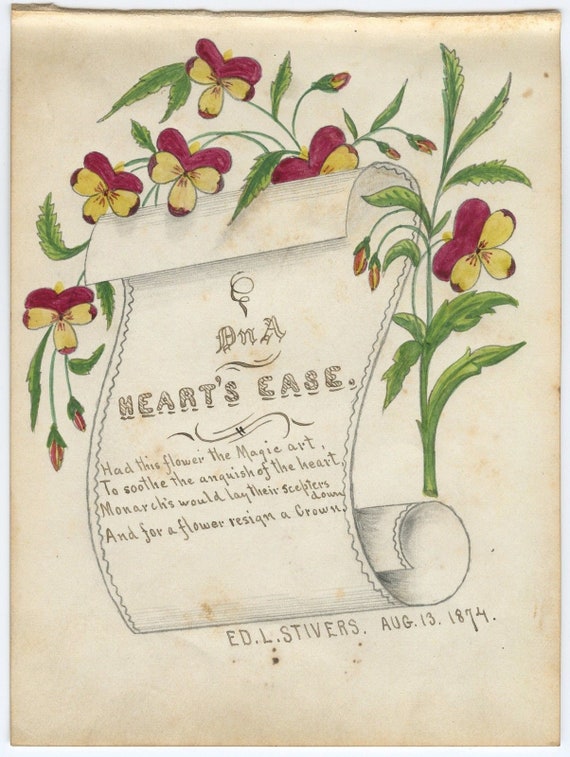 On A
HEART'S EASE.
Had this flower the Magic art,
To soothe the anguish of the heart,
Monarch's would lay their scepters down
And for a flower resign a Crown.
ED. L. STIVERS. AUG. 13. 1874.